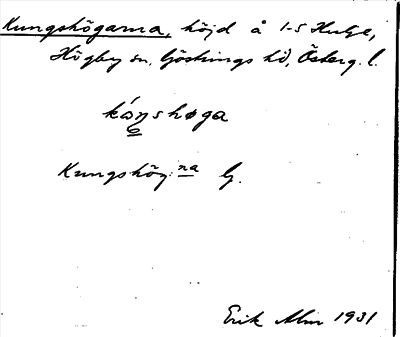 Kungshögarna, höjd å 1-5 Hulje,
Högby sn, Göstrings hd, Österg. l.
kóŋshøga
Kungshög:na G.
Erik Alm 1931